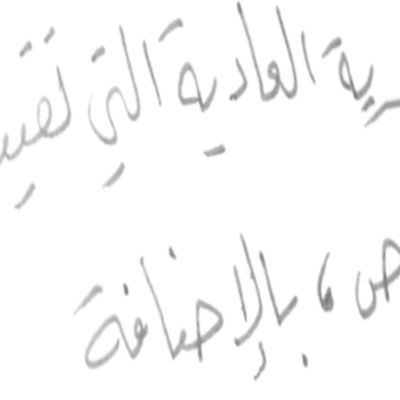 ـرية العادية التي تقيـ
ص، بالإضافة